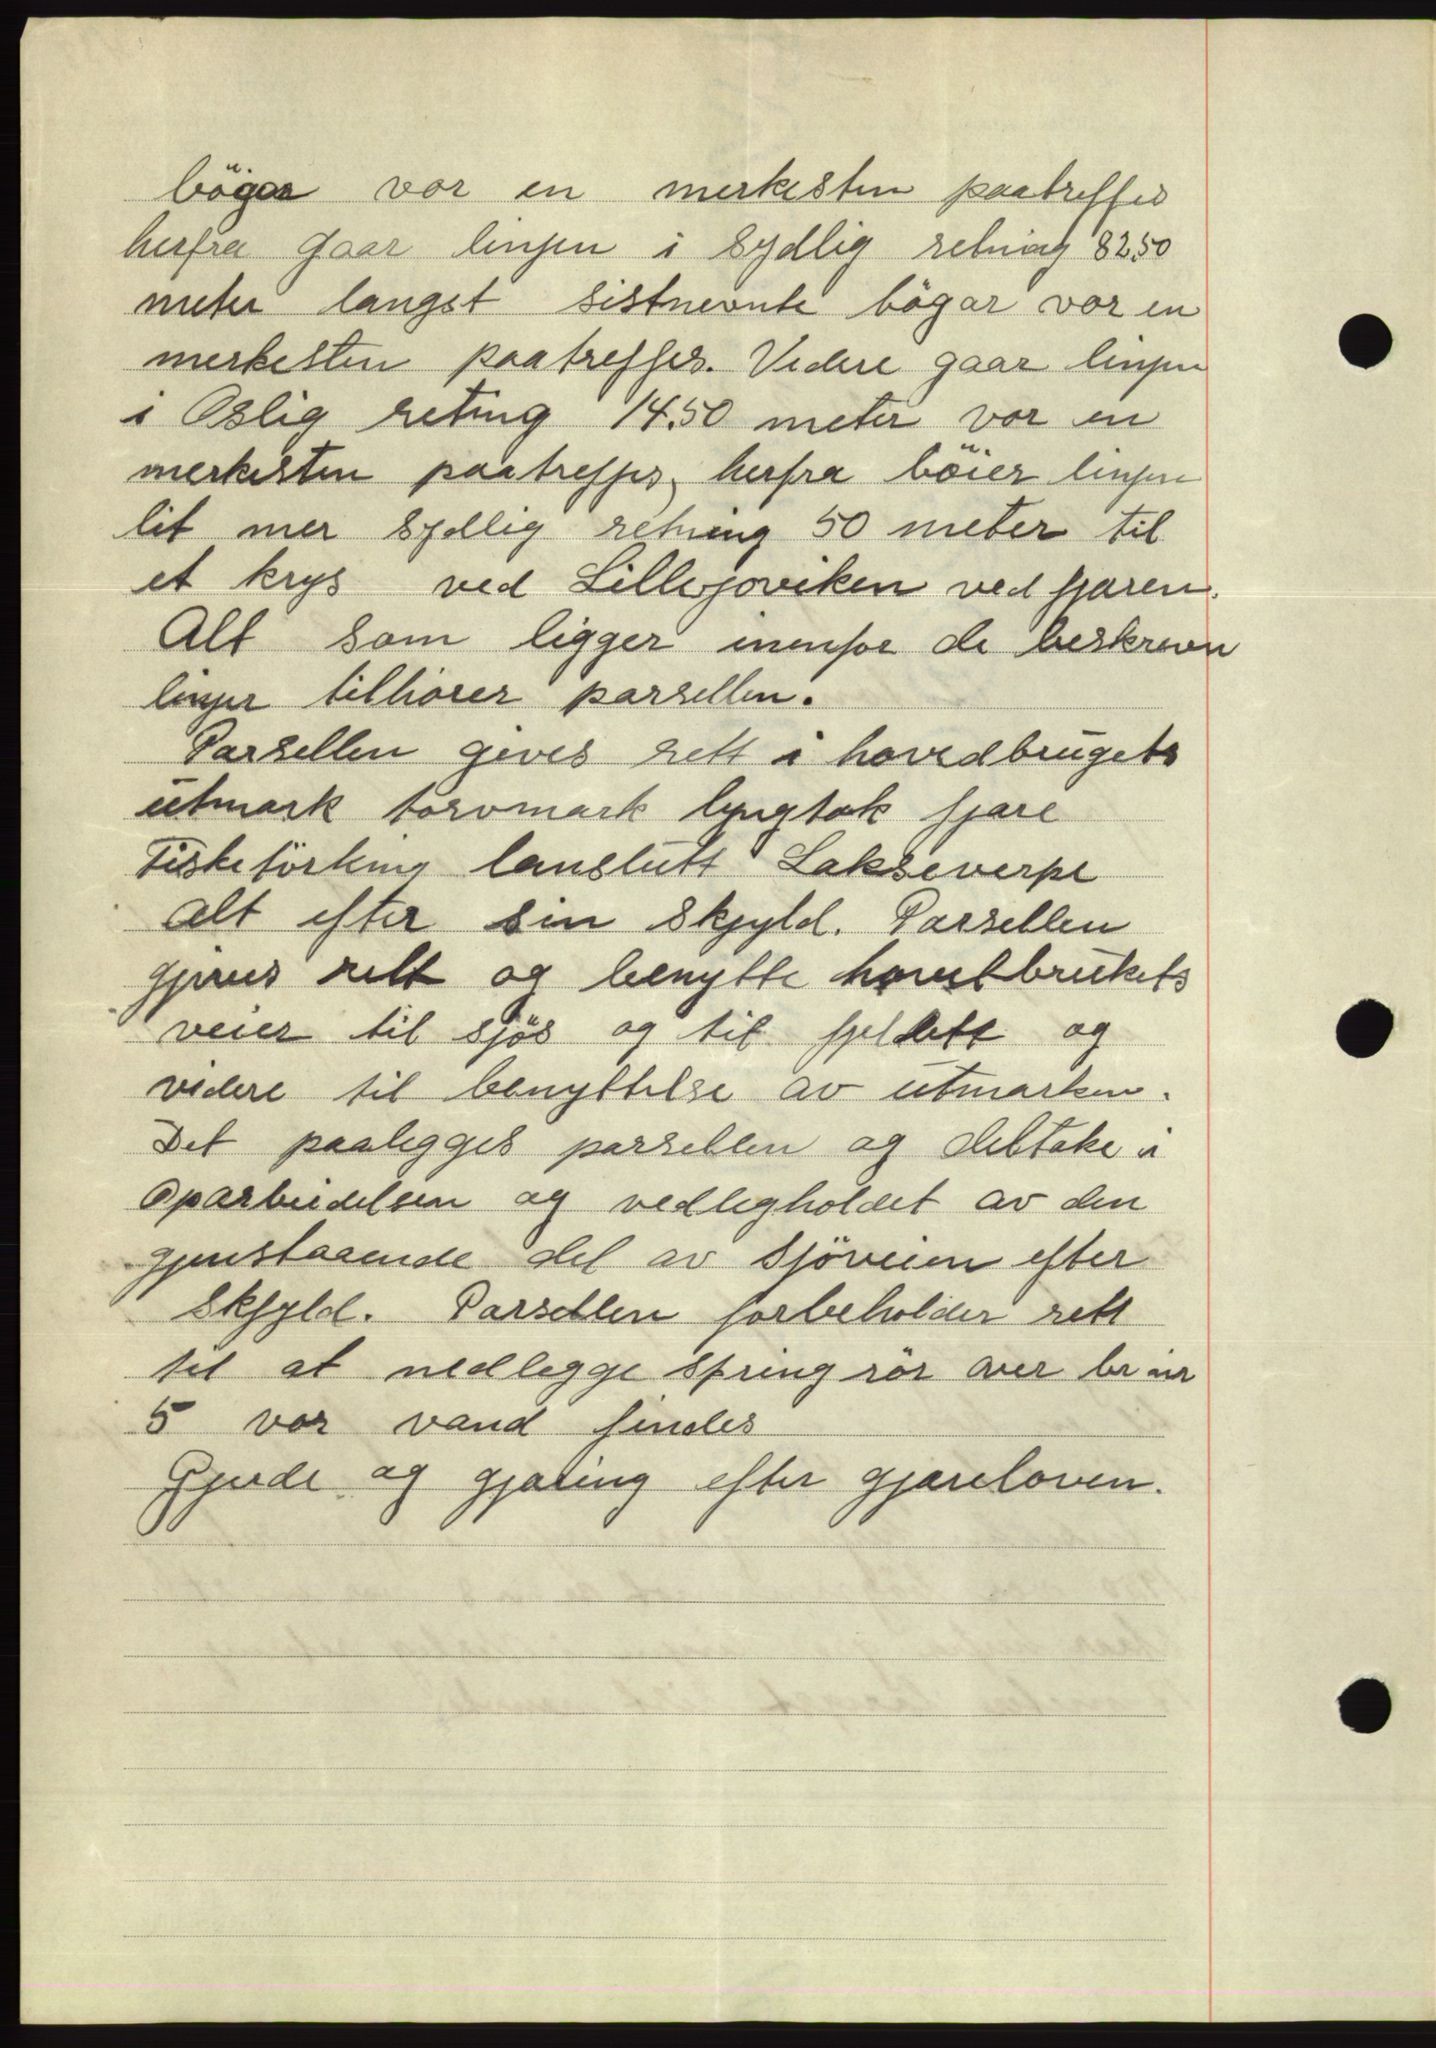 bögar vor en merkesten paatreffes
herfra gaar linjen i sydlig retning 82.50
meter langst sistnevnte bögar vor en
merkesten paatreffes. Videre gaar linjen
i Oslig reting 14.50 meter vor en
merkesten paatreffes, herfra böier linjen
lit mer sydlig retning 50 meter til
et krys ved Lillevoviken ved fjaren.
Alt som ligger inenfor de beskrevn
linjer tilhører parsellen.
Parsellen gives rett i hovedbrugets
utmark torvmark lyngtak fjare
Fisketörking lanslutt Lakseverpe
alt efter sin skjyld. Parsellen
gjives rett og benytte hovetbrukets
veier til sjös og til fjeldett og
videre til benyttelse av utmarken.
Det paalegges parsellen og deltake i
Oparbeidelsen og vedligholdet av den
gjenstaaende del av sjöveien efter
skjyld. Parsellen forbeholder rett
til at nedlegge spring rör over br nr
5 vor vand findes
Gjerde og gjæring efter gjæreloven.